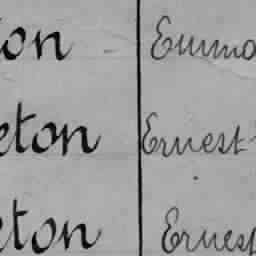 ton Emma
eton Ernest
eton Ernest